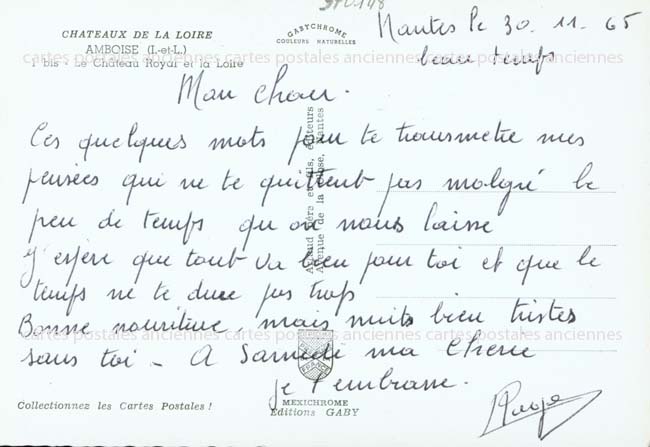 CHATEAUX DE LA LOIRE
AMBOISE (I.-et-L.)
1 bis - Le Château Royal et la Loire
GABYCHROME
COULEURS NATURELLES
Nantes le 30. 11. 65
beau temps
cartes postales anciennes cartes postales anciennes cartes postales anciennes
Mon chou.
Ces quelques mots pour te transmetre mes
pensées qui ne te quittent pas malgré le
peu de temps qu on nous laisse
J'espère que tout va bien pour toi et que le
temps ne te dure pas trop
Bonne nouriture, mais nuits bien tristes
sans toi - A Samedi ma Cherie
je t'embrasse.
Artaud Père et Fils, Éditeurs
Avenue de la Close, Nantes
cartes postales anciennes cartes postales anciennes cartes postales anciennes
MEXICHROME
Editions GABY
Collectionnez les Cartes Postales !